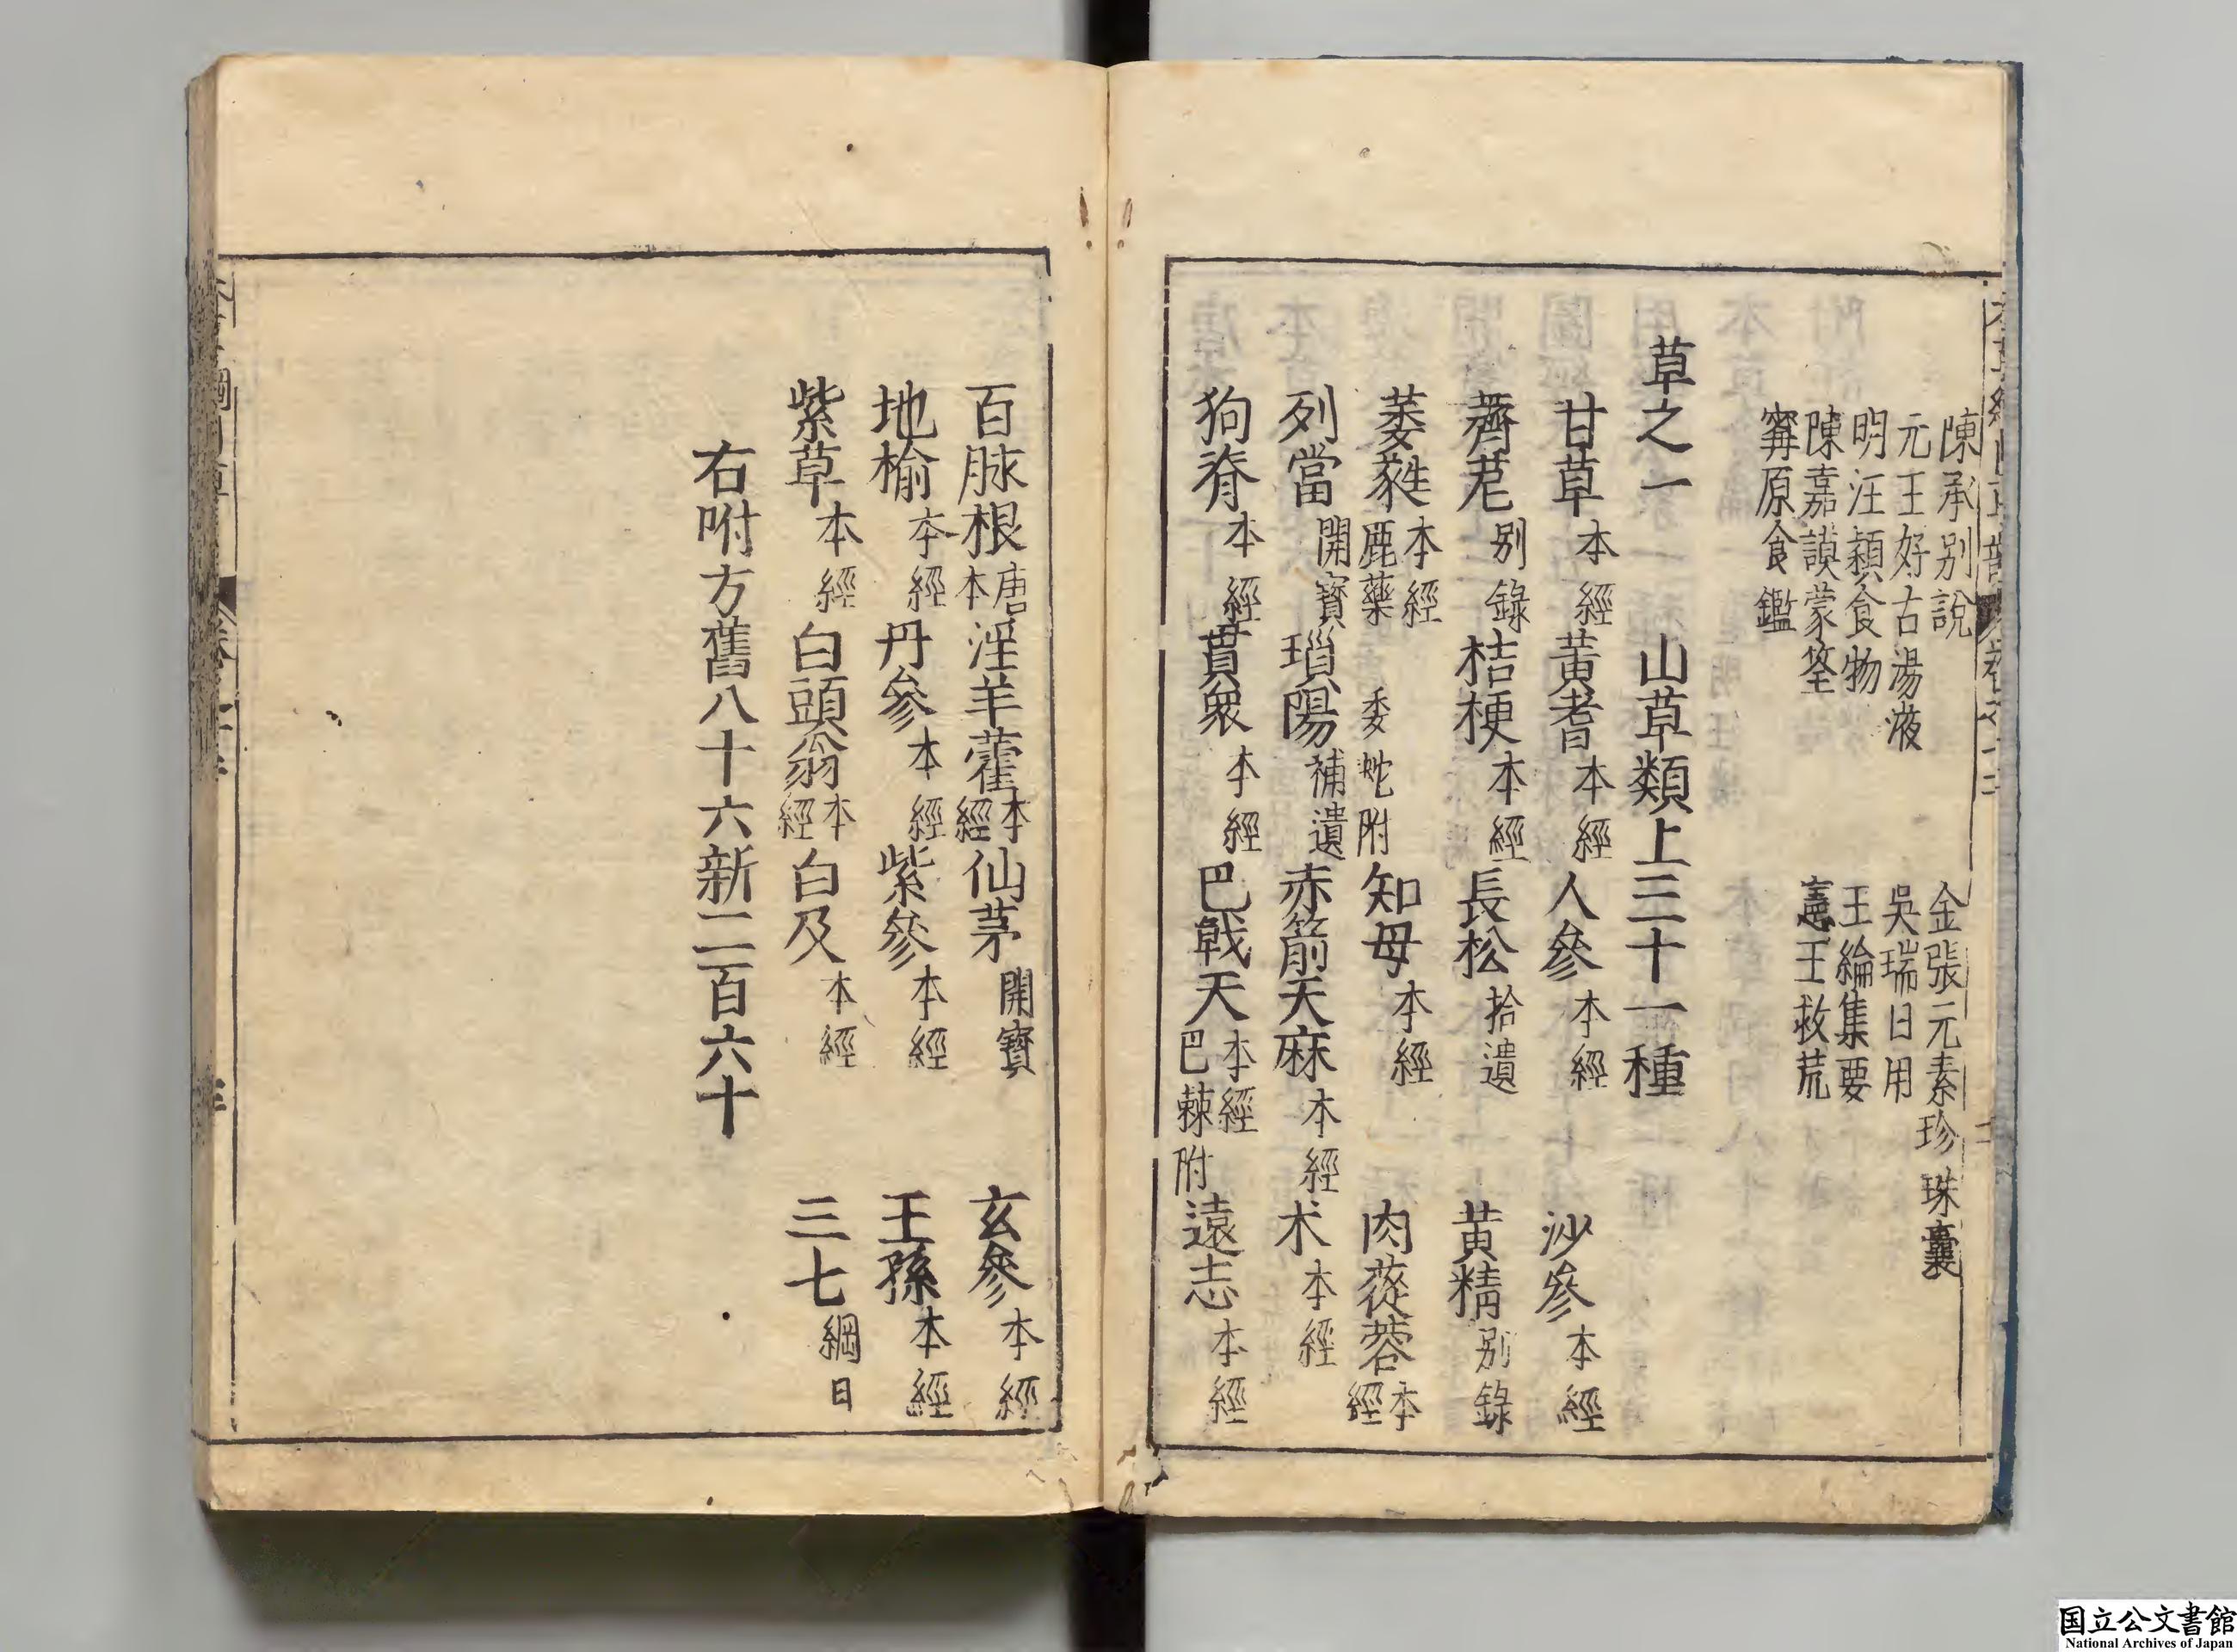 陳承别説　金張元素珍珠囊
元王好古湯液　吳瑞日用
明汪頴食物　王綸集要
陳嘉謨蒙筌　憲王救荒
寗原食鑑
草之一　山草類上三十一種
甘草本經　黃耆本經　人參本經　沙參本經
薺苨别錄　桔梗本經　長松拾遺　黃精别錄
萎蕤本經鹿藥委蛇附　知母本經　肉蓯蓉本經
列當開寶　瑣陽補遺　赤箭天麻本經　术本經
狗脊本經　貫衆本經　巴戟天本經巴棘附　遠志本經
百脉根唐本　淫羊藿本經　仙茅開寶　玄參本經
地榆本經　丹參本經　紫參本經　王孫本經
紫草本經　白頭翁本經　白及本經　三七綱目
右咐方舊八十六新二百六十
国立公文書館
National Archives of Japan